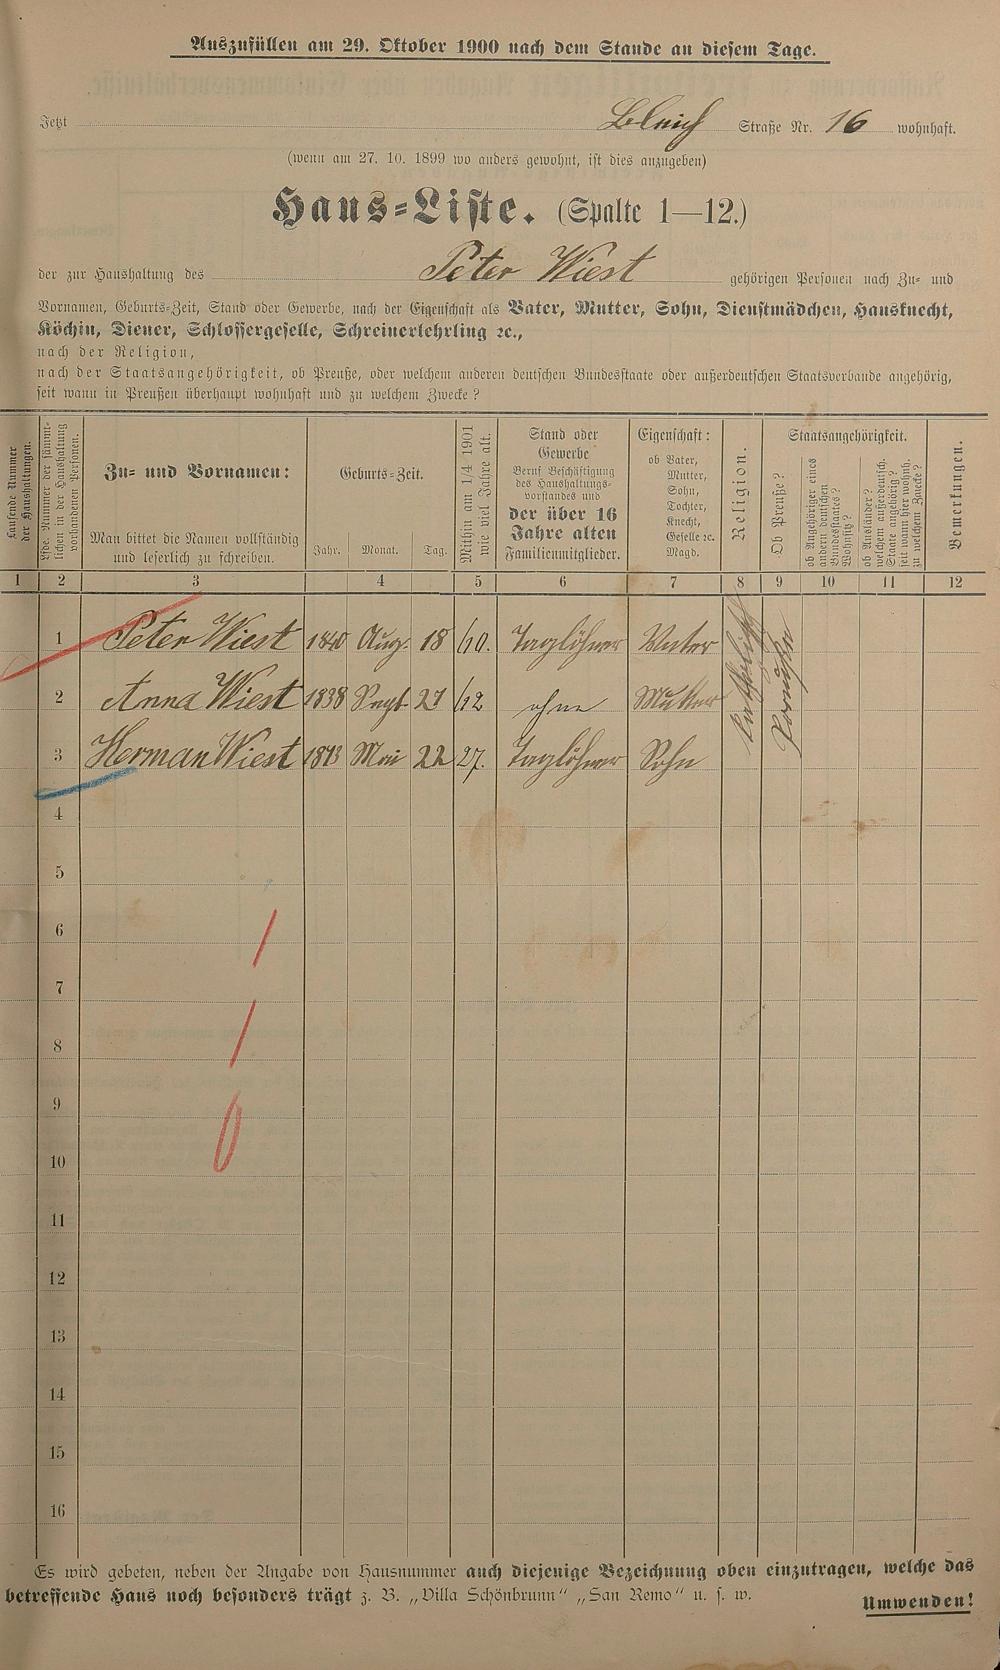 Auszufüllen am 29. Oktober 1900 nach dem Stande an diesem Tage.
Jetzt Bleich Straße Nr. 16 wohnhaft.
(wenn am 27. 10. 1899 wo anders gewohnt, ist dies anzugeben)
Haus-Liste. (Spalte 1—12.)
der zur Haushaltung des Peter Wiest gehörigen Personen nach Zu- und
Vornamen, Geburts-Zeit, Stand oder Gewerbe, nach der Eigenschaft als Vater, Mutter, Sohn, Dienstmädchen, Hausknecht,
Köchin, Diener, Schlossergeselle, Schreinerlehrling ꝛc.,
nach der Religion,
nach der Staatsangehörigkeit, ob Preuße, oder welchem anderen deutschen Bundesstaate oder außerdeutschen Staatsverbande angehörig,
seit wann in Preußen überhaupt wohnhaft und zu welchem Zwecke?
Laufende Nummer
der Haushaltungen.
Lfde. Nummer der sämmt-
lichen in der Haushaltung
vorhandenen Personen.
Zu- und Vornamen:
Man bittet die Namen vollständig
und leserlich zu schreiben.
Geburts-Zeit.
Jahr. Monat. Tag.
Mithin am 1/4 1901
wie viel Jahre alt.
Stand oder
Gewerbe
Beruf Beschäftigung
des Haushaltungs-
vorstandes und
der über 16
Jahre alten
Familienmitglieder.
Eigenschaft:
ob Vater,
Mutter,
Sohn,
Tochter,
Knecht,
Geselle ꝛc.
Magd.
Religion.
Staatsangehörigkeit.
Ob Preuße?
ob Angehöriger eines
andern deutschen
Bundesstaates?
Wohnsitz?
ob Ausländer?
welchem außerdeutsch.
Staate angehörig?
seit wann hier wohnh.
zu welchem Zwecke?
Bemerkungen.
1 2 3 4 5 6 7 8 9 10 11 12
1 Peter Wiest 1840 Aug. 18 60. Taglöhner Vater
2 Anna Wiest 1838 Sept. 27 62 ohne Mutter
3 Herman Wiest 1873 Mai 22 27. Taglöhner Sohn
katholisch
Preuße
4
5
6
7
8
9
10
11
12
13
14
15
16
Es wird gebeten, neben der Angabe von Hausnummer auch diejenige Bezeichnung oben einzutragen, welche das
betreffende Haus noch besonders trägt z. B. „Villa Schönbrunn“ „San Remo“ u. s. w.
Umwenden!